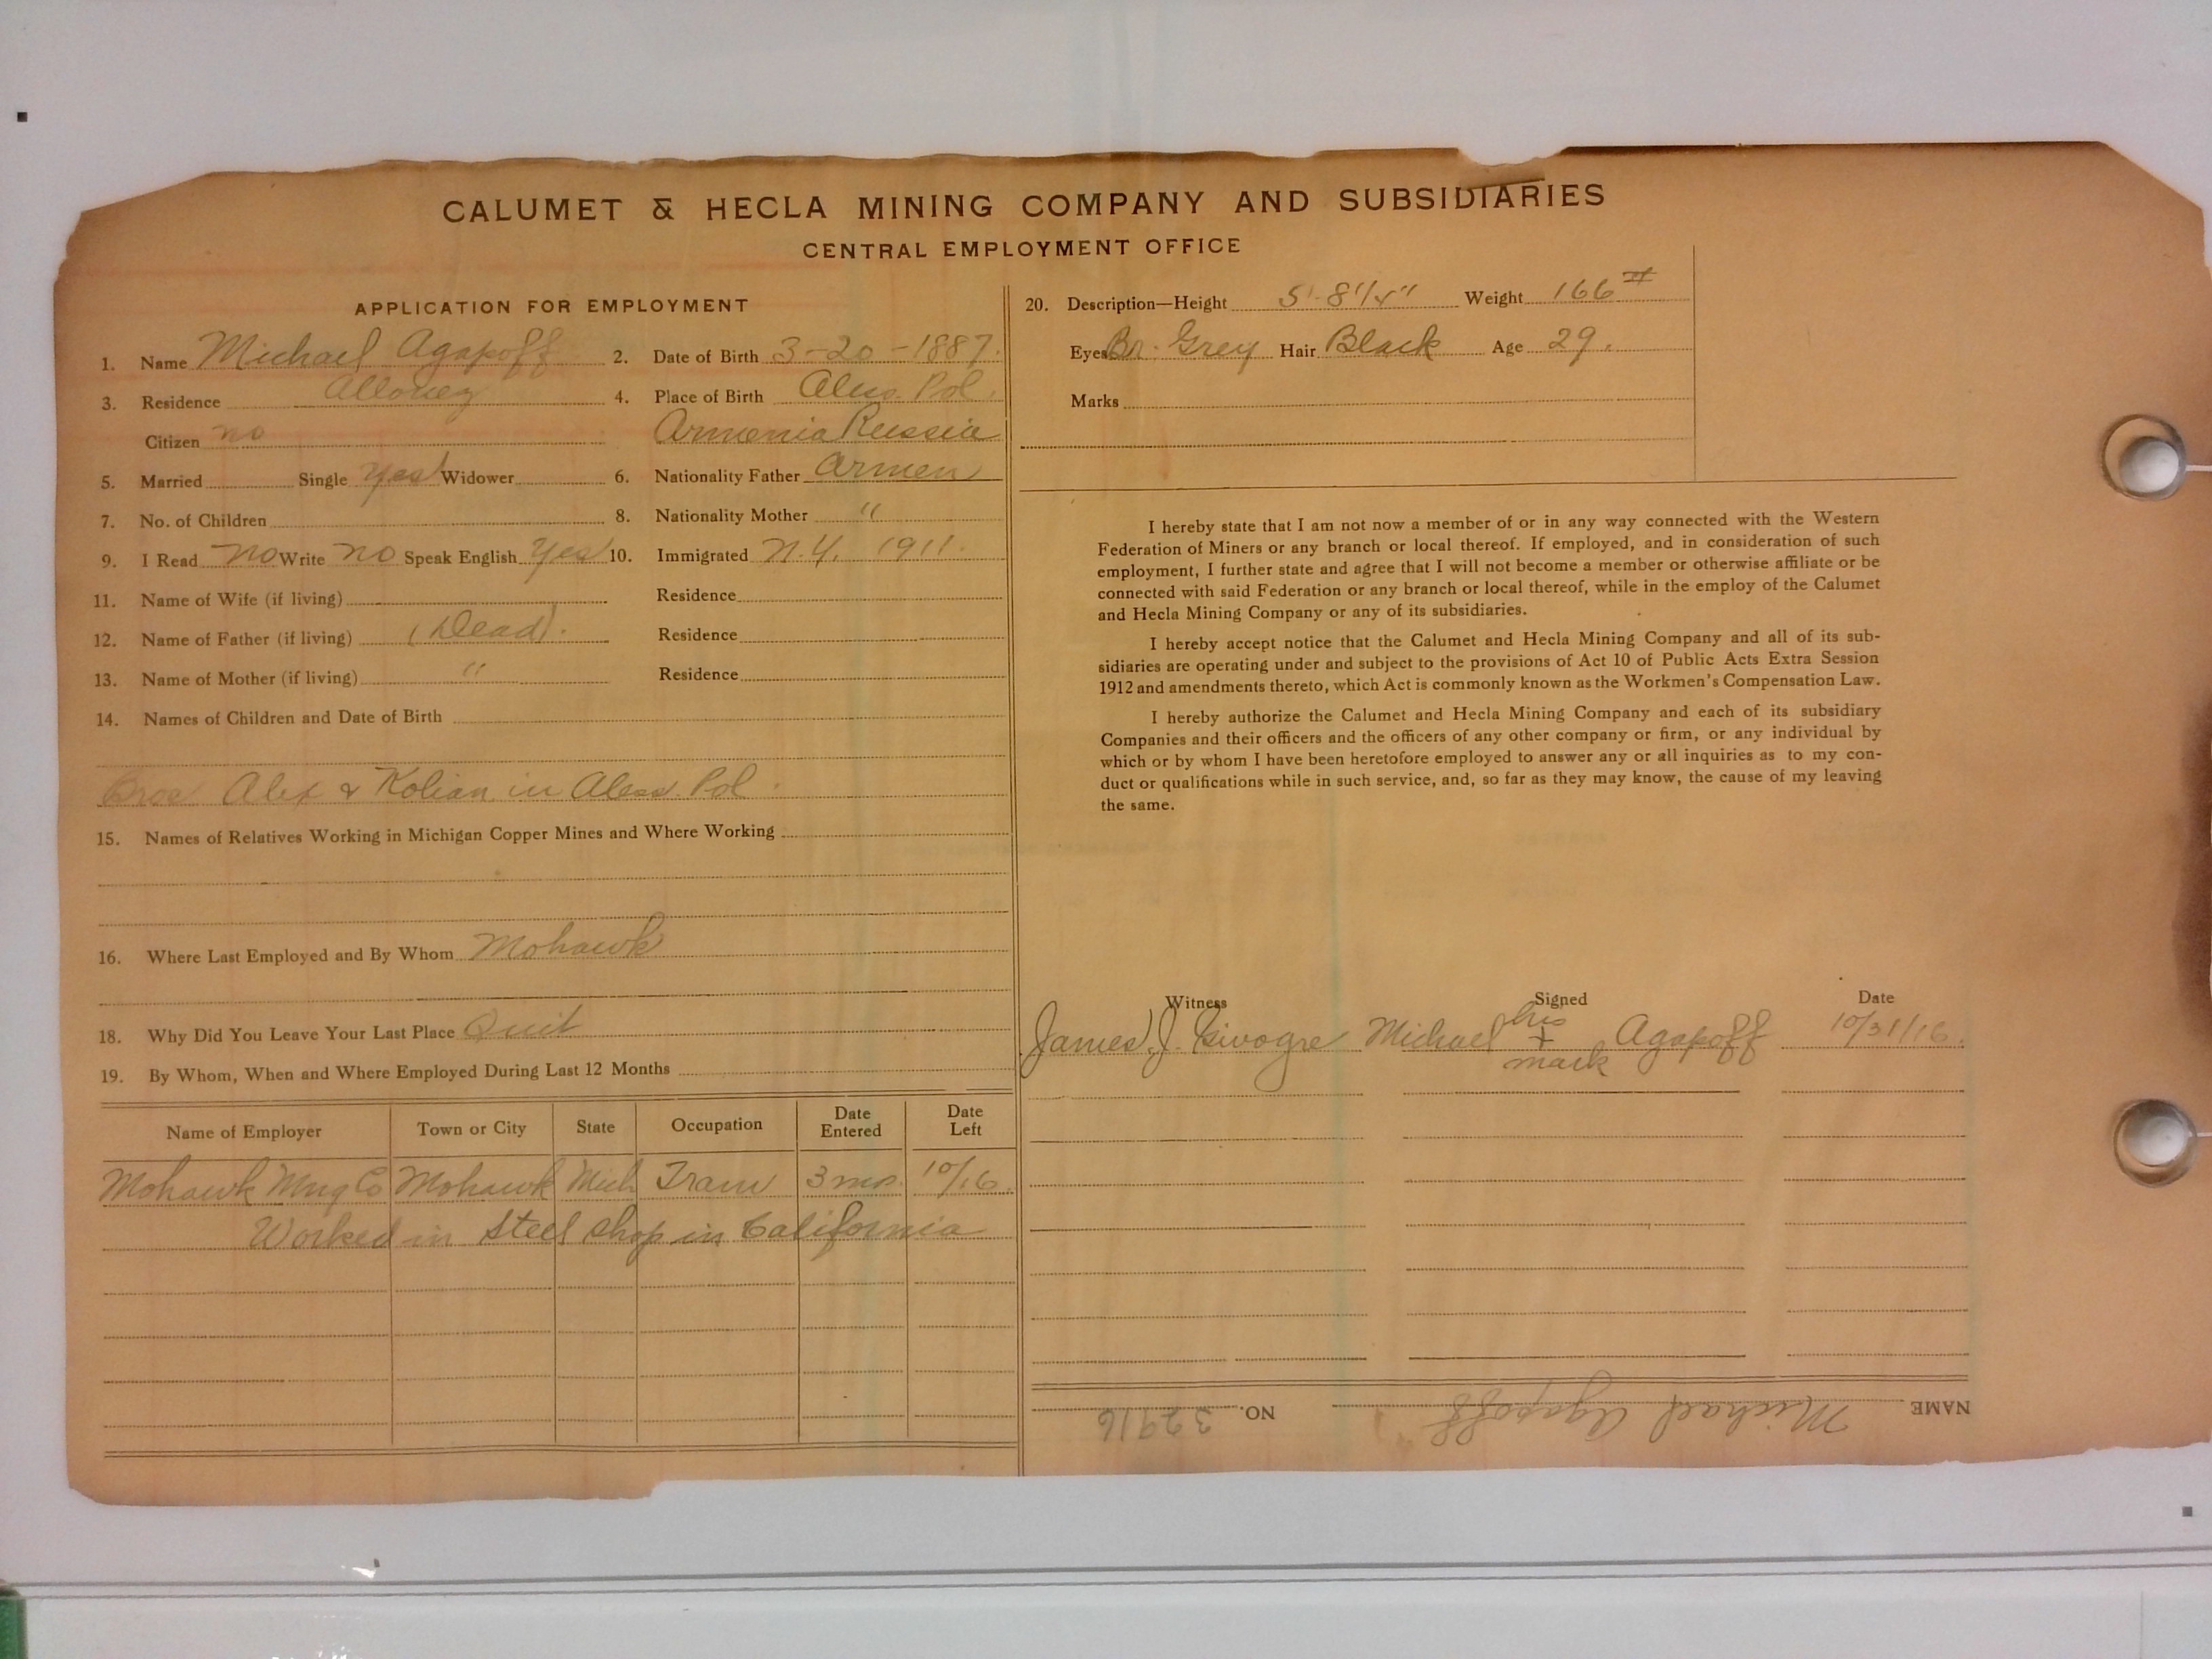 CALUMET & HECLA MINING COMPANY AND SUBSIDIARIES
CENTRAL EMPLOYMENT OFFICE
APPLICATION FOR EMPLOYMENT
1. Name Michael Agapoff 2. Date of Birth 3-20-1887.
3. Residence Allouez 4. Place of Birth Alex. Pol.
Citizen no Armenia Russia
5. Married Single Yes Widower 6. Nationality Father Armen
7. No. of Children 8. Nationality Mother "
9. I Read no Write no Speak English Yes 10. Immigrated N.Y. 1911.
11. Name of Wife (if living) Residence
12. Name of Father (if living) (Dead). Residence
13. Name of Mother (if living) " Residence
14. Names of Children and Date of Birth
Bros Alex & Kolian in Alexa. Pol.
15. Names of Relatives Working in Michigan Copper Mines and Where Working
16. Where Last Employed and By Whom Mohawk
18. Why Did You Leave Your Last Place Quit
19. By Whom, When and Where Employed During Last 12 Months
Name of Employer Town or City State Occupation Date Entered Date Left
Mohawk Mng Co Mohawk Mich Tram 3 mos. 10/16.
Worked in Steel shop in California
20. Description—Height 5'-8 1/4" Weight 166#
Eyes Br. Grey Hair Black Age 29.
Marks
I hereby state that I am not now a member of or in any way connected with the Western
Federation of Miners or any branch or local thereof. If employed, and in consideration of such
employment, I further state and agree that I will not become a member or otherwise affiliate or be
connected with said Federation or any branch or local thereof, while in the employ of the Calumet
and Hecla Mining Company or any of its subsidiaries.
I hereby accept notice that the Calumet and Hecla Mining Company and all of its sub-
sidiaries are operating under and subject to the provisions of Act 10 of Public Acts Extra Session
1912 and amendments thereto, which Act is commonly known as the Workmen's Compensation Law.
I hereby authorize the Calumet and Hecla Mining Company and each of its subsidiary
Companies and their officers and the officers of any other company or firm, or any individual by
which or by whom I have been heretofore employed to answer any or all inquiries as to my con-
duct or qualifications while in such service, and, so far as they may know, the cause of my leaving
the same.
Witness Signed Date
James J. Michael his + mark Agapoff 10/31/16.
NAME Michael Agapoff NO. 32916